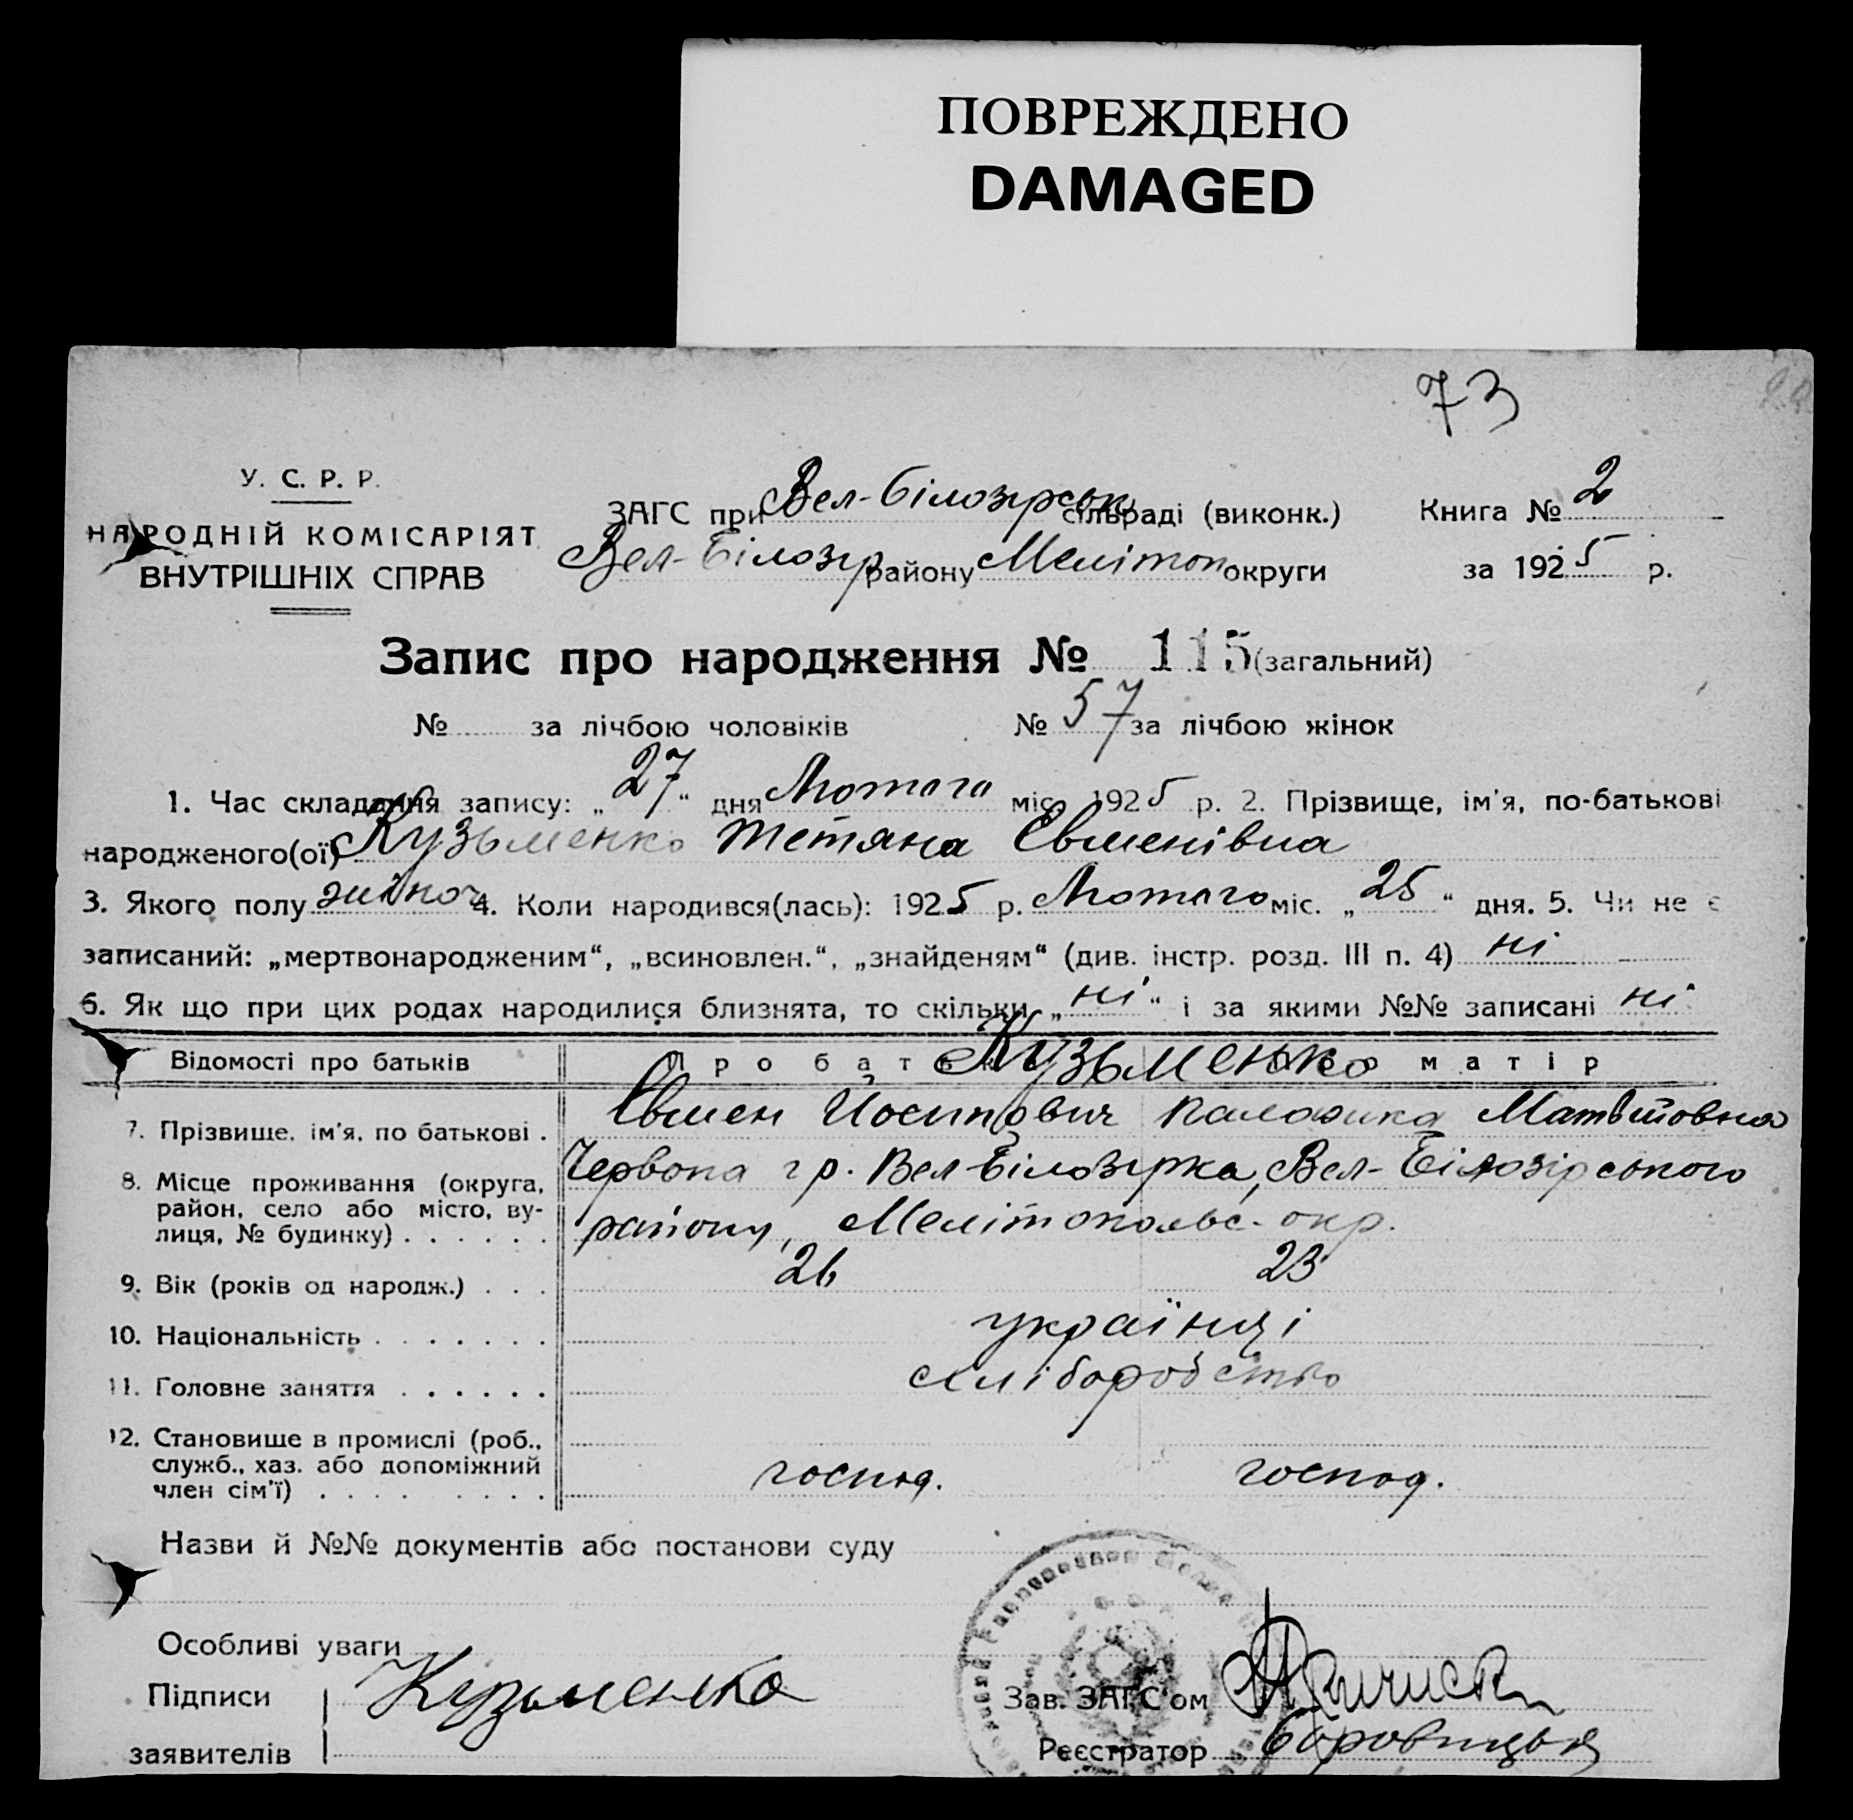 ПОВРЕЖДЕНО
DAMAGED
73
У. С. Р. Р.
НАРОДНІЙ КОМІСАРІЯТ
ВНУТРІШНІХ СПРАВ
ЗАГС при Вел-Білозірськ сільраді (виконк.) Книга № 2
Вел-Білозір району Мелітоп округи за 1925 р.
Запис про народження № 115 (загальний)
№ за лічбою чоловіків № 57 за лічбою жінок
1. Час складання запису: „27“ дня Лютого міс. 1925 р. 2. Прізвище, ім'я, по-батькові
народженого(ої) Кузьменко Тетяна Євменівна
3. Якого полу жіноч 4. Коли народився(лась): 1925 р. Лютого міс. „25“ дня. 5. Чи не є
записаний: „мертвонародженим“, „всиновлен.“, „знайденям“ (див. інстр. розд. III п. 4) ні
6. Як що при цих родах народилися близнята, то скільки „ні“ і за якими №№ записані ні
Відомості про батьків Про батька Кузьменко Про матір
7. Прізвище, ім'я, по батькові . Євмен Йосипович Палажка Матвіївна
8. Місце проживання (округа, Червона гр. Вел-Білозірка, Вел-Білозірського
район, село або місто, ву-
лиця, № будинку) . . . . . . району, Мелітопольс. окр.
9. Вік (років од народж.) . . . 26 23
10. Національність . . . . . . . українці
11. Головне заняття . . . . . . хліборобство
12. Становище в промислі (роб.,
служб., хаз. або допоміжний
член сім'ї) . . . . . . . . господ. господ.
Назви й №№ документів або постанови суду
Особливі уваги
Підписи Кузьменко Зав. ЗАГС'ом
заявителів Реєстратор